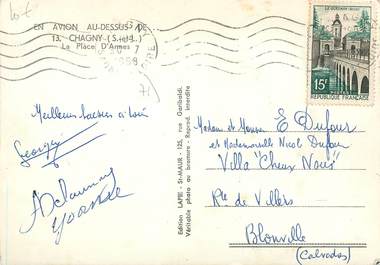 EN AVION AU-DESSUS DE ...
13. CHAGNY (S.-et-L.)
La Place D'Armes
LE QUESNOY
15F
RÉPUBLIQUE FRANÇAISE
Meilleurs baisers à tous
Georges
Yvonne
Edition LAPIE - St-MAUR - 125, rue Garibaldi.
Véritable photo au bromure - Reprod. interdite
Madame et Monsieur E Dufour
et Mademoiselle Nicol Dufour
Villa "Cheux Nous"
Rte de Villers
Blonville
(Calvados)